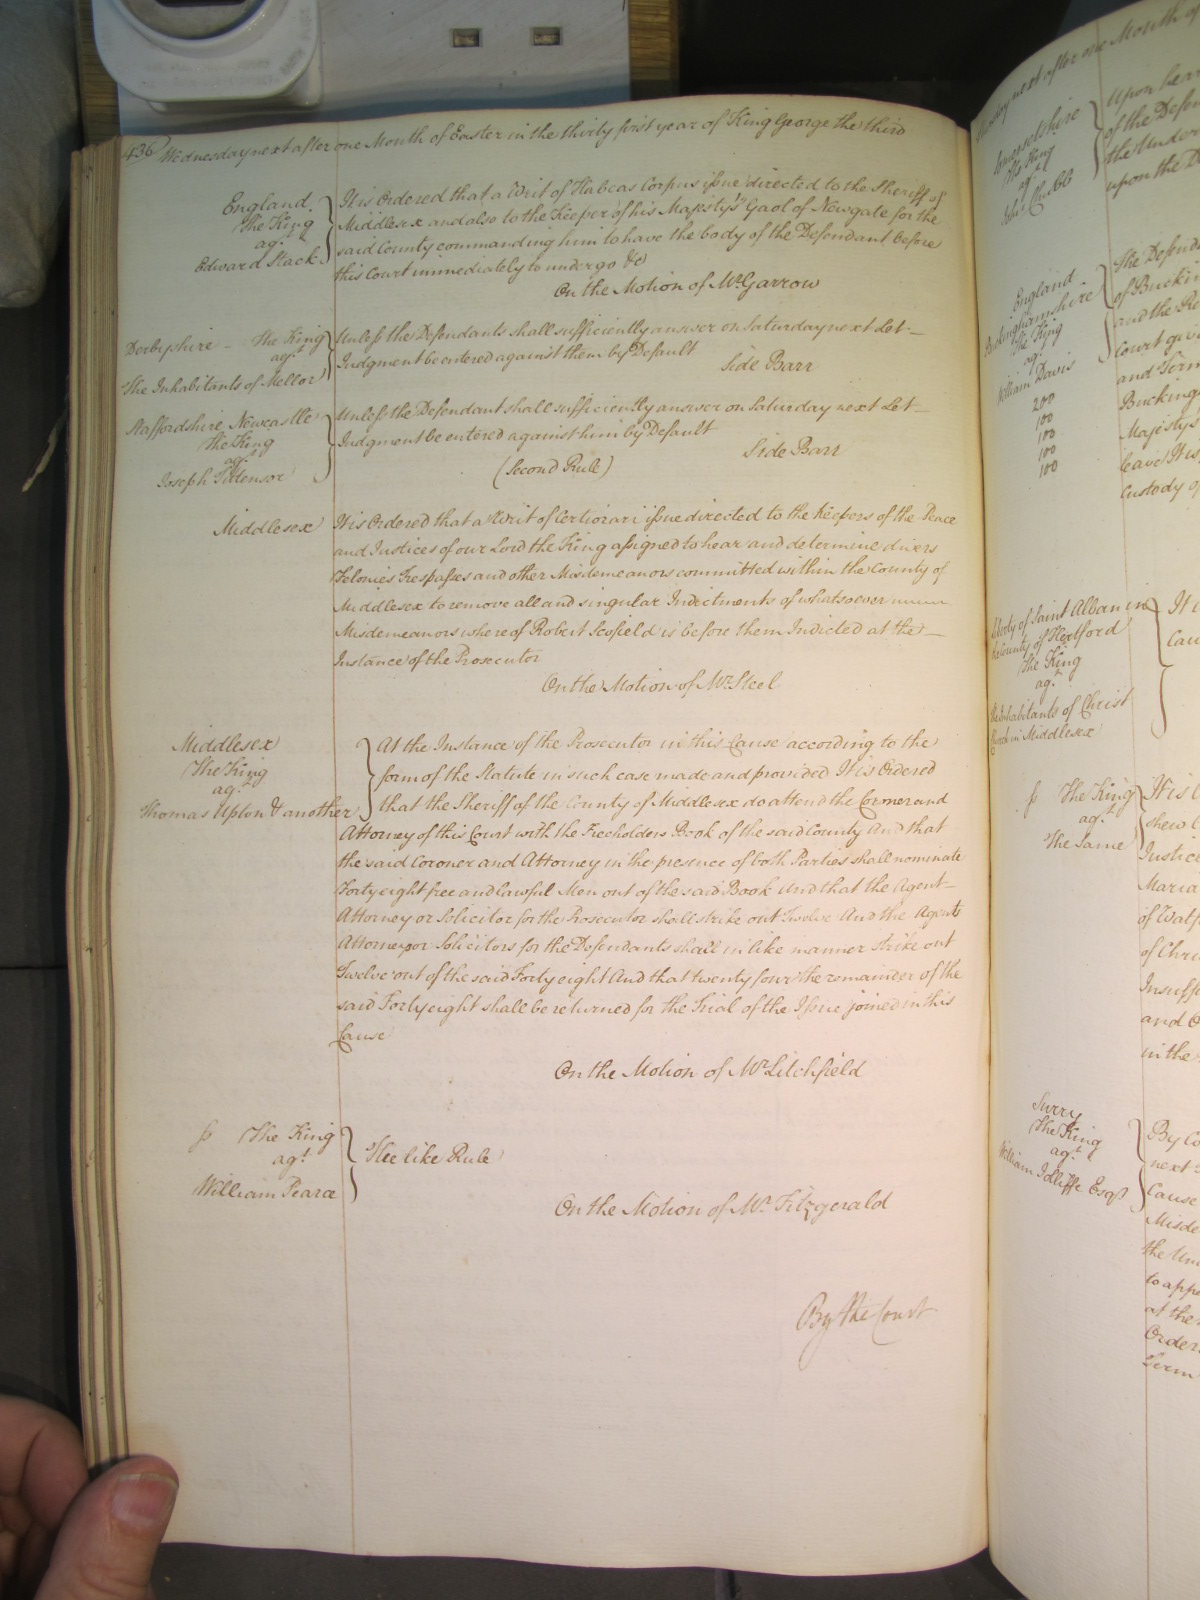 436 Wednesday next after one Month of Easter in the thirty first year of King George the third
England
The King
agt
Edward Stack
It is Ordered that a Writ of Habeas Corpus issue directed to the Sheriff of
Middlesex and also to the Keeper of his Majesty's Gaol of Newgate for the
said County commanding him to have the body of the Defendant before
this Court immediately to undergo &c
On the Motion of Mr. Garrow
Derbyshire - The King
agt
The Inhabitants of Mellor
Unless the Defendants shall sufficiently answer on Saturday next Let
Judgment be entered against them by Default
Side Barr
Staffordshire Newcastle
The King
agt
Joseph
Unless the Defendant shall sufficiently answer on Saturday next Let
Judgment be entered against him by Default
Side Barr
(Second Rule)
Middlesex
It is Ordered that a Writ of Certiorari issue directed to the Keepers of the Peace
and Justices of our Lord the King assigned to hear and determine divers
Felonies Trespasses and other Misdemeanors committed within the County of
Middlesex to remove all and singular Indictments of whatsoever
Misdemeanors whereof Robert Scofield is before them Indicted at the
Instance of the Prosecutor
On the Motion of Mr. Steel
Middlesex
The King
agt
Thomas Upton & another
At the Instance of the Prosecutor in this Cause according to the
form of the Statute in such case made and provided It is Ordered
that the Sheriff of the County of Middlesex do attend the Coroner and
Attorney of this Court with the Freeholders Book of the said County And that
the said Coroner and Attorney in the presence of both Parties shall nominate
Forty eight free and lawful Men out of the said Book And that the Agent
Attorney or Solicitor for the Prosecutor shall strike out Twelve And the Agents
Attorneys or Solicitors for the Defendants shall in like manner strike out
Twelve out of the said Forty eight And that twenty four the remainder of the
said Forty eight shall be returned for the Trial of the Issue joined in this
Cause
On the Motion of Mr. Litchfield
fs The King
agt
William Pearce
The like Rule
On the Motion of Mr. Fitzgerald
By the Court
next after one Month of
Somersetshire
The King
agt
John Chubb
Upon hear
of the Defen
the Under
upon the D
England
Buckinghamshire
The King
agt
William Davis
200
100
100
100
100
The Defend
of Buckin
and the
Court
and
Bucking
Majestys
leave It is
Custody of
Liberty of Saint Alban in
the County of Hertford
The King
agt
The Inhabitants of Christ
Church in Middlesex
It i
Cau
fs The King
agt
The Same
It is
shew
Justice
Maria
of Watf
of Chri
Insuff
and O
in the
Surry
The King
agt
William Esqr
By Co
next
Cause
Misde
the Un
to appe
at the
Order
Term